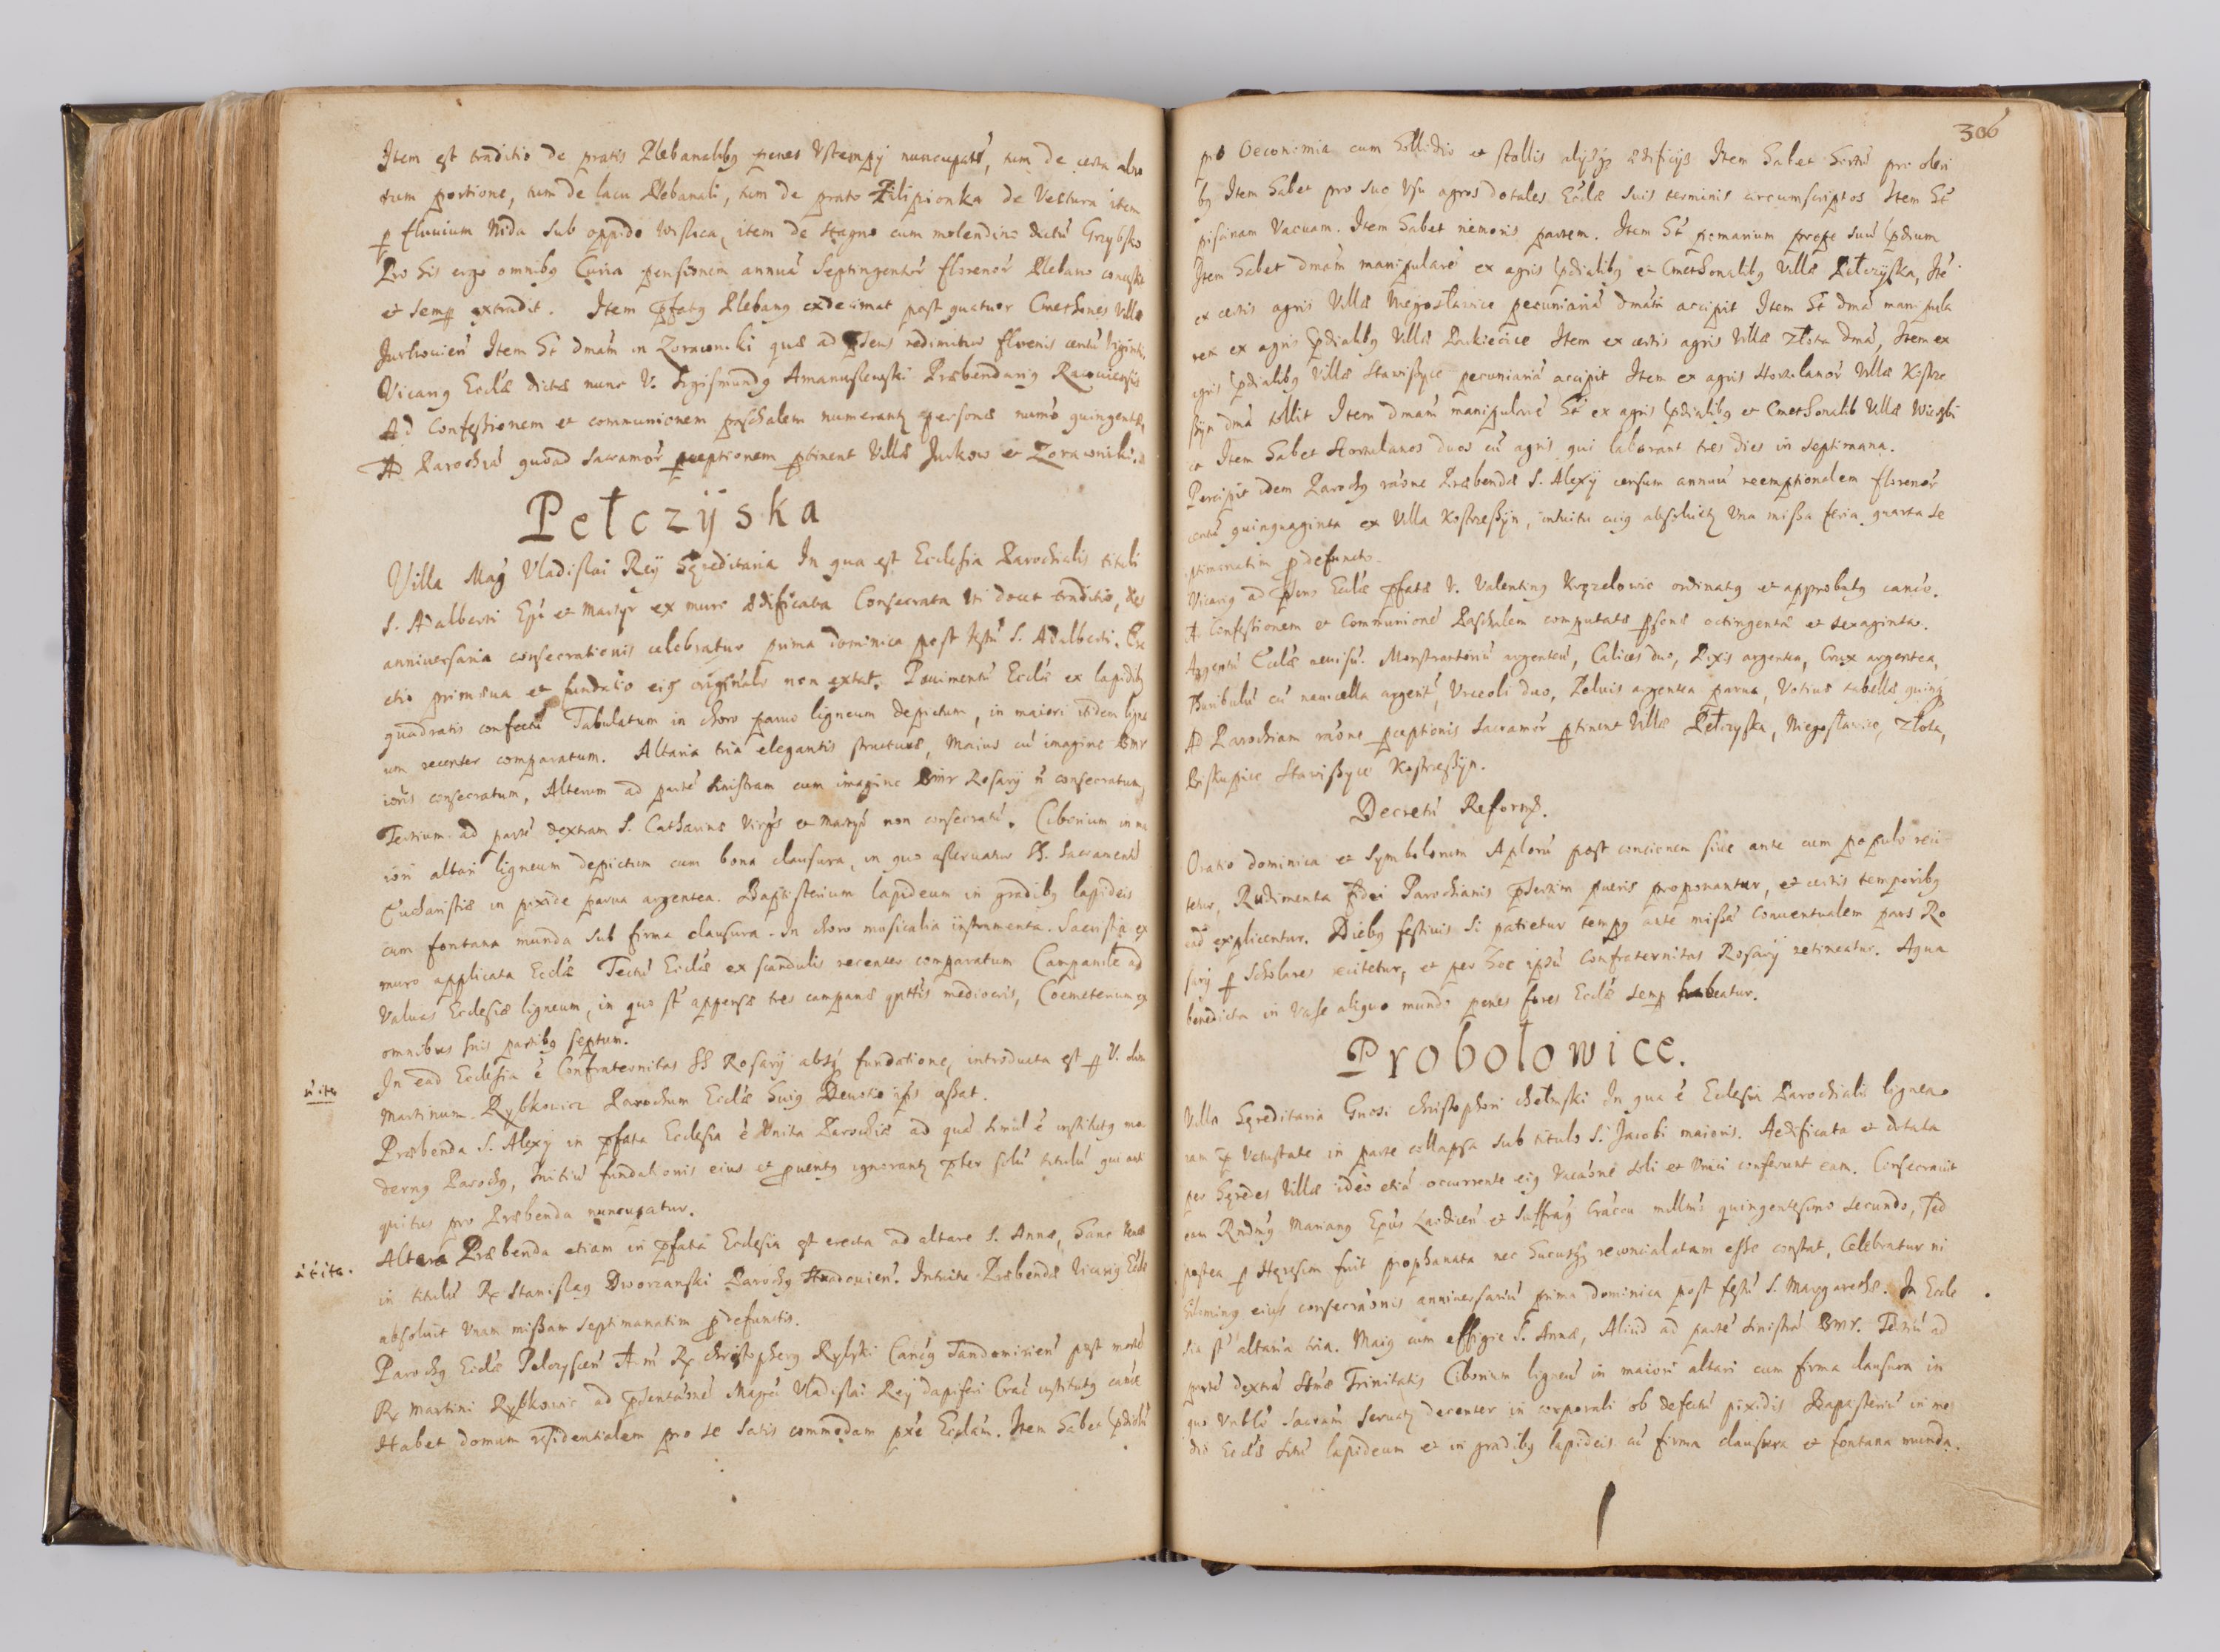 Item est traditio de pratis Plebanalibꝯ penes Vstempij nuncupatis, tum de certa
tum portione, tum de lacu Plebanali, tum de prato Filipionka de Vectura item
ꝑ fluuium Nida sub oppido Wislica, item de stagno cum molendino dictũ Grzybsko
Pro his ergo omnibꝯ Curia pensionem annuã septingentor̃ florenor̃ Plebano
et semꝑ extradit. Item p̃fatꝯ Plebanꝯ exdecimat post quatuor Cmethones Villæ
Jurkouieñ Item ht̃ dmãm in Zorawniki quæ ad p̃sens redimitur florenis centũ viginti
Vicariꝯ Ecclæ dictæ nunc V. Sigismundꝯ Amanuslewski Præbendariꝯ
Ad Confessionem et communionem paschalem numerantꝯ personæ numo quingentæ
Ad Parochiã quoad sacramor̃ perceptionem ꝑtinent Villæ Jurkow et Zorawniki.
Pełczÿska
Villa Mag̃ Vladislai Reÿ Hæreditaria In qua est Ecclesia Parochialis tituli
S. Adalberti Ep̃i et Martyr ex muro ædificata Consecrata vti docet traditio, dies
anniuersaria consecrationis celebratur prima dominica post festũ S. Adalberti. Ere
ctio primæua et fundatio eiꝯ originalis non extat. Pauimentũ Ecclæ ex lapidibꝯ
quadratis confectũ Tabulatum in choro paruo ligneum depictum, in maiori itidem ligne
um recenter comparatum. Altaria tria elegantis structuræ, Maius cũ imagine BMV
ioris consecratum, Alterum ad partẽ sinistram cum imagine BMV Rosarÿ ñ consecratum,
Tertium ad partẽ dextram S. Catharinæ Virgis et Martyris non consecratũ. Ciborium in ma
iori altari ligneum depictum cum bona clausura, in quo asseruatur SS. Sacramentũ
Eucharistiæ in pixide parua argentea. Baptisterium lapideum in gradibꝯ lapideis
cum fontana munda sub firma clausura. In choro musicalia instrumenta. Sacristia ex
muro applicata Ecclæ Tectũ Ecclæ ex scandulis recenter comparatum Campanile ad
Valuas Ecclesiæ ligneum, in quo st̃ appensæ tres campanæ mediocris, Coemeterium ex
omnibus suis partibꝯ septum.
In ead Ecclesia ẽ Confraternitas SS Rosarÿ absqꝫ fundatione, introducta est ꝑ V. olim
Martinum Rybkowic Parochum Ecclæ huiꝯ Deuotio ipsis cessat.
Præbenda S. Alexÿ in p̃fata Ecclesia ẽ Vnita Parochiæ ad quã simul ẽ institutꝯ mo
dernꝯ Parochꝯ, Initiũ fundationis eius et ꝓuentꝯ ignorantꝯ p̃ter solũ titulũ qui anti
quitus pro Præbenda nuncupatur.
Altera Præbenda etiam in p̃fata Ecclesia est erecta ad altare S. Annæ, hanc tenet
in titulũ R. Stanislaꝯ Dworzanski Parochꝯ Intuitu Præbendæ Vicariꝯ Ecclæ
absoluit vnam missam septimanatim ꝓ defunctis.
Parochꝯ Ecclæ Pelczyscen A. R. Christopherꝯ Rylski Cancꝯ Sandomirieñ post mortẽ
R. Martini Rybkowic ad p̃sentãonẽ Magci Vladislai Reÿ dapiferi Crac̃ institutꝯ cãnce
Habet domum residentialem pro se satis commodam pxẽ Ecclãm. Item habet
306
pro Oeconomia cum et stallis alijsqꝫ ædificijs Item habet hortũ pro oleri
bꝯ Item habet pro suo vsu agros dotales Ecclæ suis terminis circumscriptos Item ht̃
piscinam Vacuam. Item habet nemoris partem. Item ht̃ pomarium prope suũ p̃dium
Item habet dmãm manipularẽ ex agris p̃dialibꝯ et Cmethonalibꝯ Villæ Pełczÿska, Itẽ
ex certis agris Villæ Niegosławice pecuniariã dmãm accipit Item ht̃ dmã manipula
rem ex agris p̃dialibꝯ Villæ Item ex certis agris Villæ Złota dmã, Item ex
agris p̃dialibꝯ Villæ Stawiszyce pecuniariã accipit Item ex agris Hortulanor̃ Villæ Kostrze
szyn dmã tollit Item dmãm manipularẽ ht̃ ex agris p̃dialibꝯ et Cmethonalib Villæ
ce Item habet Hortulanos duos cũ agris qui laborant tres dies in septimana.
Percipit idem Parochꝯ rãone Præbendæ S. Alexÿ censum annuũ reemptionalem florenor̃
centũ quinquaginta ex Villa Kostrzeszyn, intuitu cuiꝯ absoluitꝯ vna missa feria quarta se
ptimanatim ꝓ defuncto.
Vicariꝯ ad p̃sens Ecclæ p̃fatæ V. Valentinꝯ ordinatꝯ et approbatꝯ cancc.
A. Confessionem et Communionẽ Paschalem computatæ ꝑsonæ octingentæ et sexaginta.
Argentũ Ecclæ reuisũ. Monstrantoriũ argenteũ, Calices duo, Pixis argentea, Crux argentea,
Thuribulũ cũ nauicella argent, Vrceoli duo, Peluis argentea parua, Votiuæ tabellæ quinqꝫ
Ad Parochiam rãone ꝑceptionis sacramor̃ ꝑtinent Villæ Pełczyska, Niegosławice, Złota,
Biskupice Stawiszyce Kostrzeszyn.
Decretũ Reformæ.
Oratio dominica et Symbolorum Aplorũ post concionem siue ante cum populo reci
tetur, Rudimenta fidei Parochianis p̃sertim pueris proponantur, et certis temporibꝯ
ead explicentur. Diebꝯ festiuis si patietur tempꝯ ante missã Conuentualem pars Ro
sarÿ ꝑ Scholares recitetur, et per hoc ipsũ Confraternitas Rosarÿ retineatur. Aqua
benedicta in Vase aliquo mundo penes fores Ecclæ semꝑ habeatur.
Probołowice.
Villa Hæreditaria Gnosi Christophori Chełmski In qua ẽ Eclesia Parochialis lignea
iam ꝑ Vetustate in parte collapsa sub titulo S. Jacobi maioris. Aedificata et dotata
per Hæredes Villæ ideo etiã occurrente eiꝯ Vacãone soli et Vnici conferunt eam. Consecrauit
eam Rndmꝯ Marianꝯ Epũs Laodicen et Suffrag̃ Cracou millm̃o quingentesimo secundo, sed
postea ꝑ Hæresim fuit prophanata nec hucusqꝫ reconcialatam esse constat, Celebratur ni
hilominꝯ eius consecrãonis anniuersariũ prima dominica post festũ S. Margarethæ. In Eccle
sia st̃ altaria tria. Maiꝯ cum effigie S. Annæ, Aliud ad partẽ sinistrã BMV. Tertiũ ad
partẽ dextrã Stmæ Trinitatis Ciborium ligneũ in maiori altari cum firma clausura in
quo Vnble Sacram̃ seruatꝯ decenter in corporali ob defectũ pixidis Baptisteriũ in me
dio Ecclæ situ lapideum et in gradibꝯ lapideis cũ firma clausura et fontana munda.